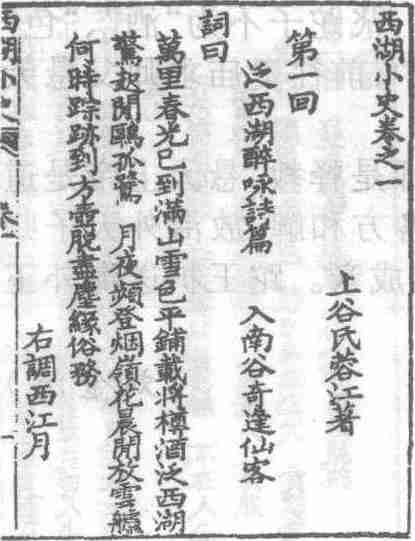 西湖小史卷之一
上谷氏蓉江著
第一回
泛西湖醉咏詩篇　入南谷奇逢仙客
詞曰
萬里春光已到滿山雪色平鋪載將樽酒泛西湖
驚起閒鷗孤鶩　月夜頻登烟嶺花晨閒放雲艫
何時踪跡到方壺脫盡塵緣俗務
右調西江月
西湖小史
卷一